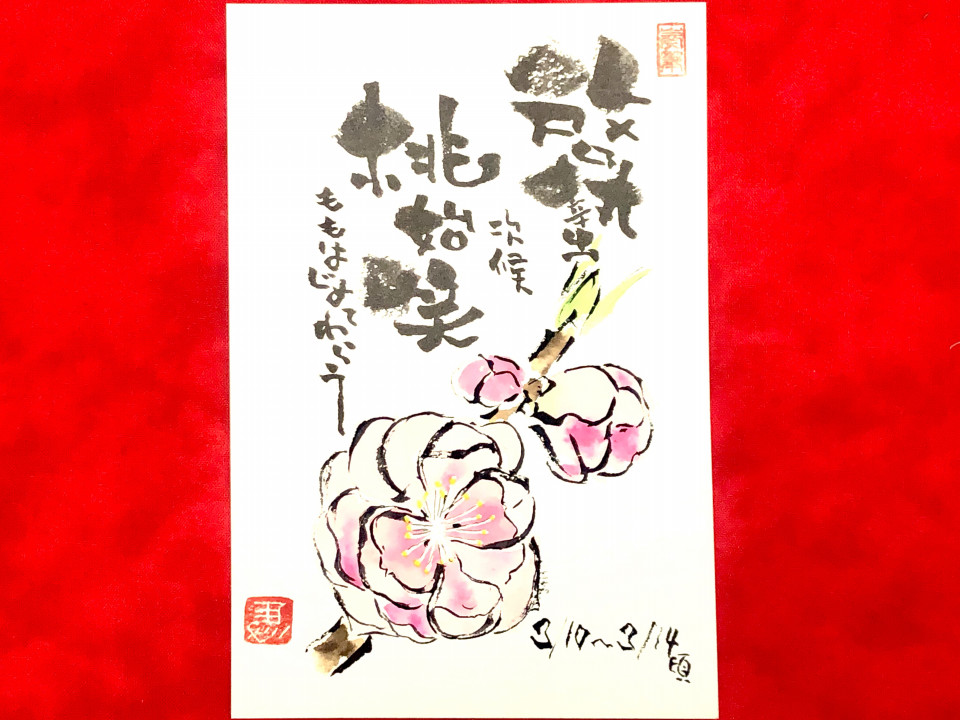 啓蟄
次候
桃始笑
ももはじめてわらう
3/10〜3/14頃